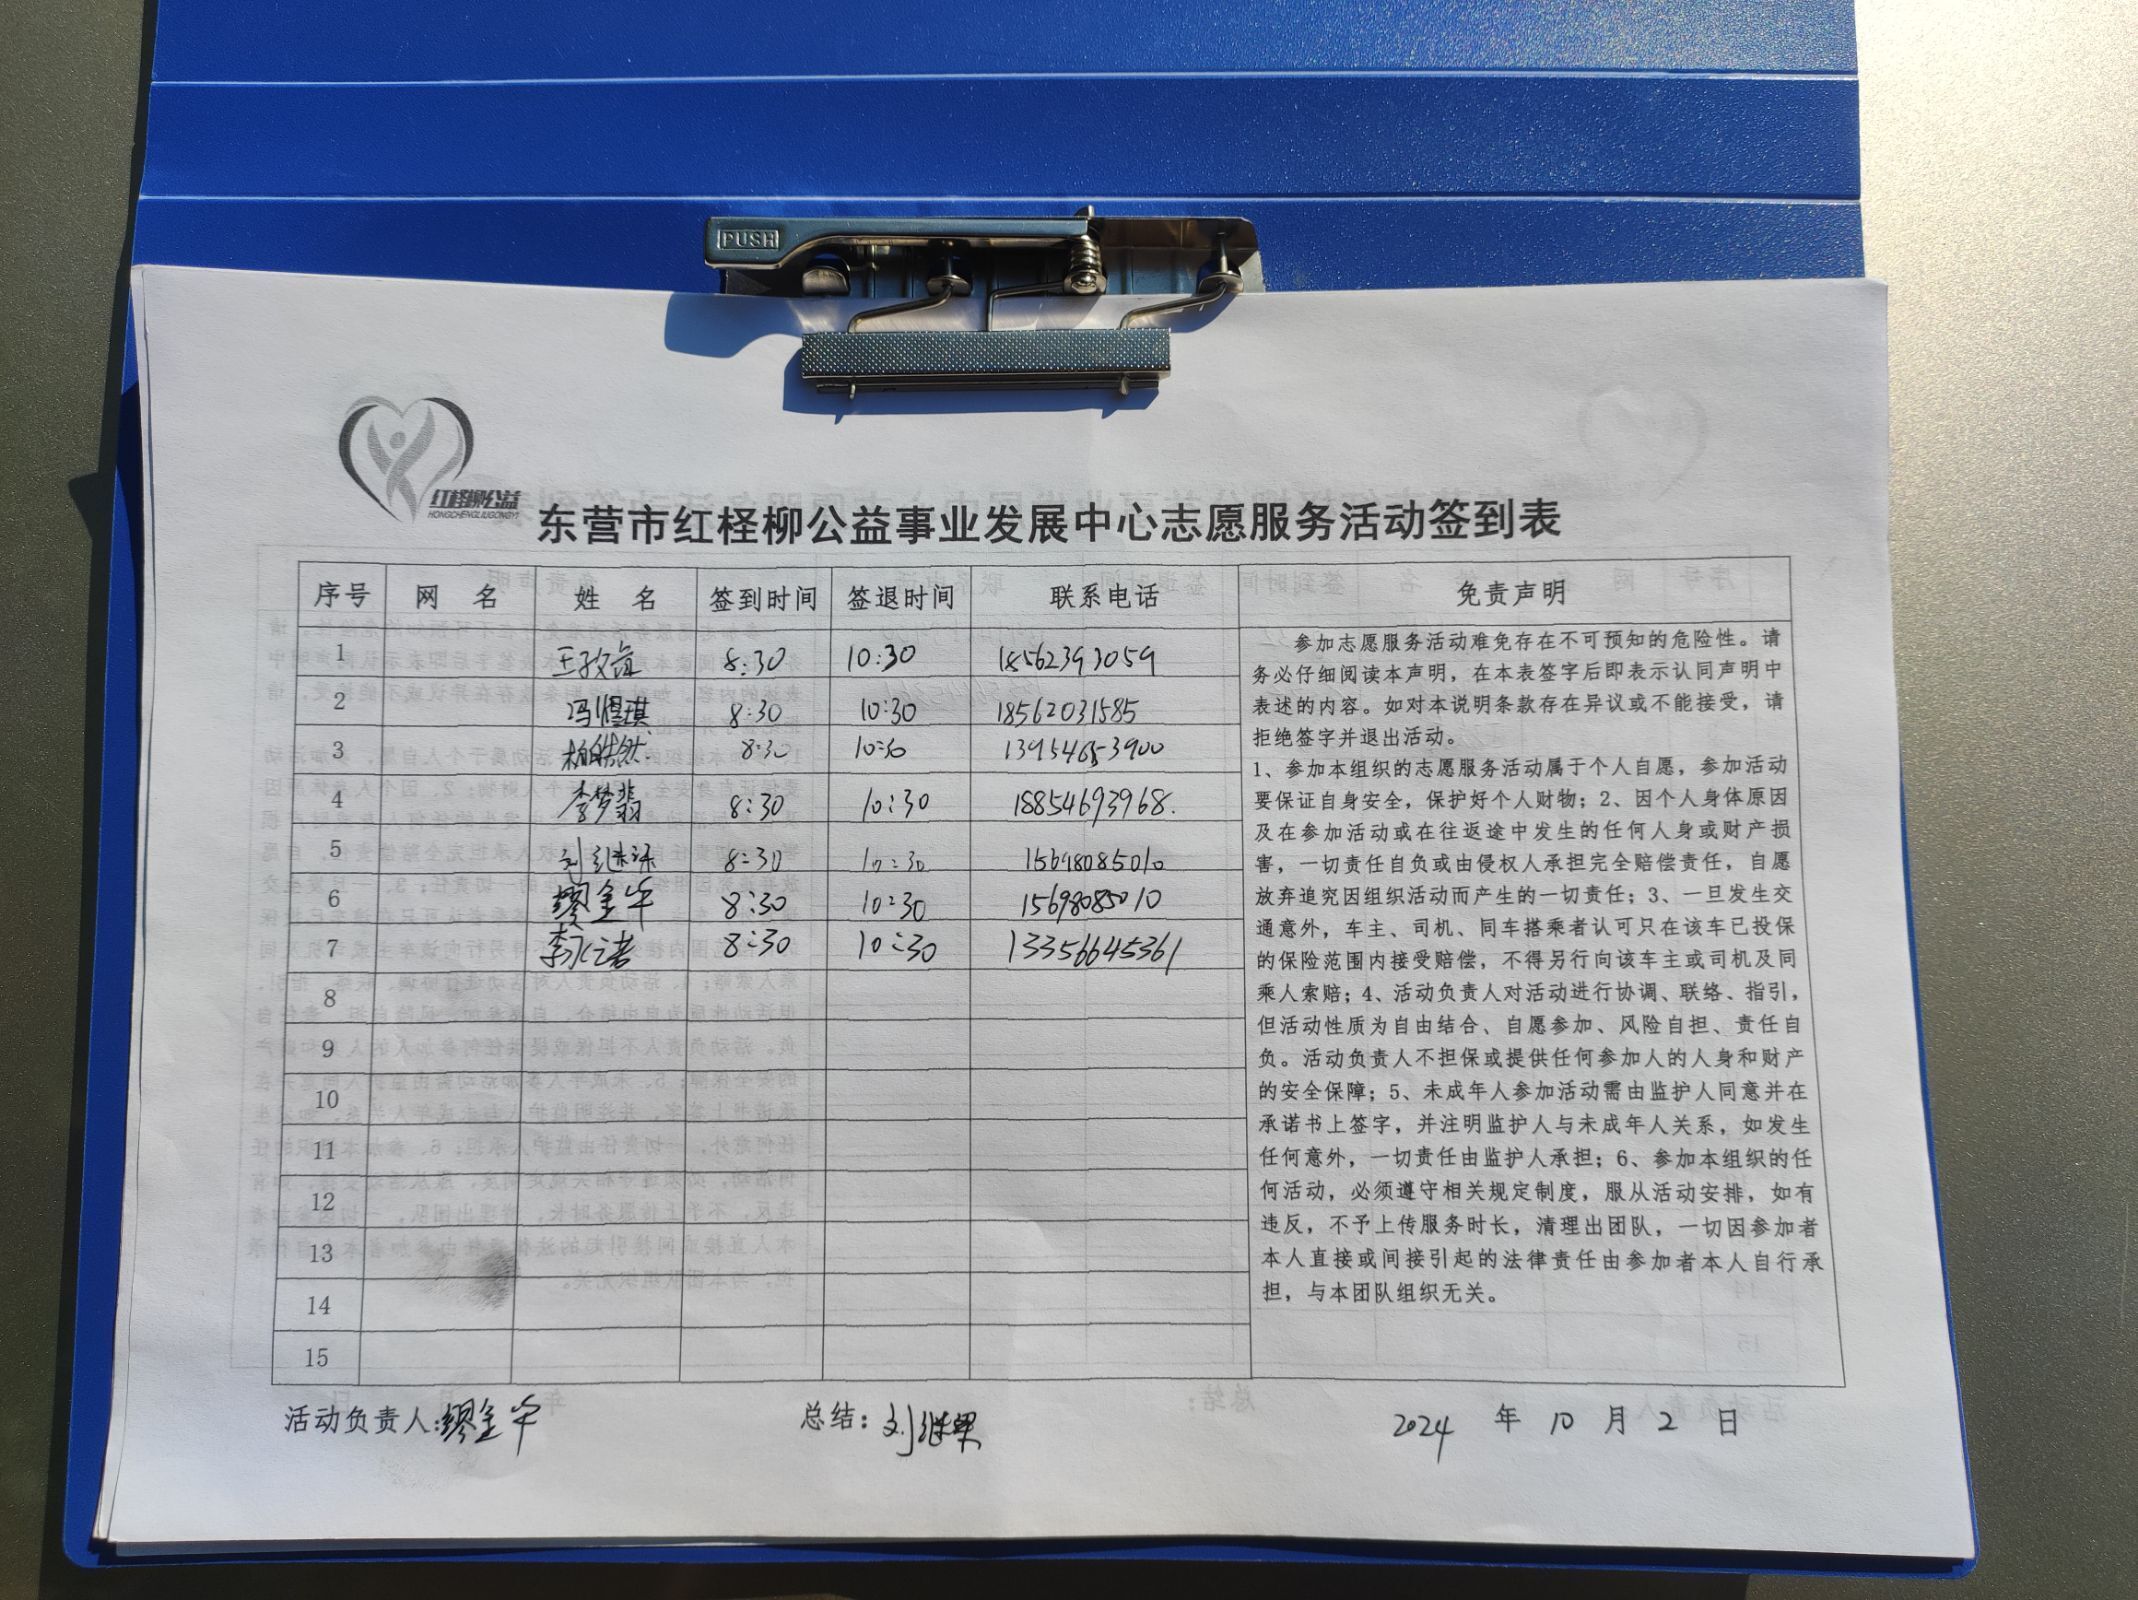 PUSH
红柽柳公益
HONGCHENGLIUGONGYI
东营市红柽柳公益事业发展中心志愿服务活动签到表
序号 网 名 姓 名 签到时间 签退时间 联系电话 免责声明
1 8:30 10:30 18562393059
2 冯煜琪 8:30 10:30 18562031585
3 柏皓然 8:30 10:30 13954653900
4 李梦翡 8:30 10:30 18854693968.
5 8:30 10:30 15698085010
6 缪金华 8:30 10:30 15698085010
7 8:30 10:30 13356645361
8
9
10
11
12
13
14
15
参加志愿服务活动难免存在不可预知的危险性。请
务必仔细阅读本声明，在本表签字后即表示认同声明中
表述的内容。如对本说明条款存在异议或不能接受，请
拒绝签字并退出活动。
1、参加本组织的志愿服务活动属于个人自愿，参加活动
要保证自身安全，保护好个人财物；2、因个人身体原因
及在参加活动或在往返途中发生的任何人身或财产损
害，一切责任自负或由侵权人承担完全赔偿责任，自愿
放弃追究因组织活动而产生的一切责任；3、一旦发生交
通意外，车主、司机、同车搭乘者认可只在该车已投保
的保险范围内接受赔偿，不得另行向该车主或司机及同
乘人索赔；4、活动负责人对活动进行协调、联络、指引，
但活动性质为自由结合、自愿参加、风险自担、责任自
负。活动负责人不担保或提供任何参加人的人身和财产
的安全保障；5、未成年人参加活动需由监护人同意并在
承诺书上签字，并注明监护人与未成年人关系，如发生
任何意外，一切责任由监护人承担；6、参加本组织的任
何活动，必须遵守相关规定制度，服从活动安排，如有
违反，不予上传服务时长，清理出团队，一切因参加者
本人直接或间接引起的法律责任由参加者本人自行承
担，与本团队组织无关。
活动负责人:缪金华 总结： 2024 年 10 月 2 日